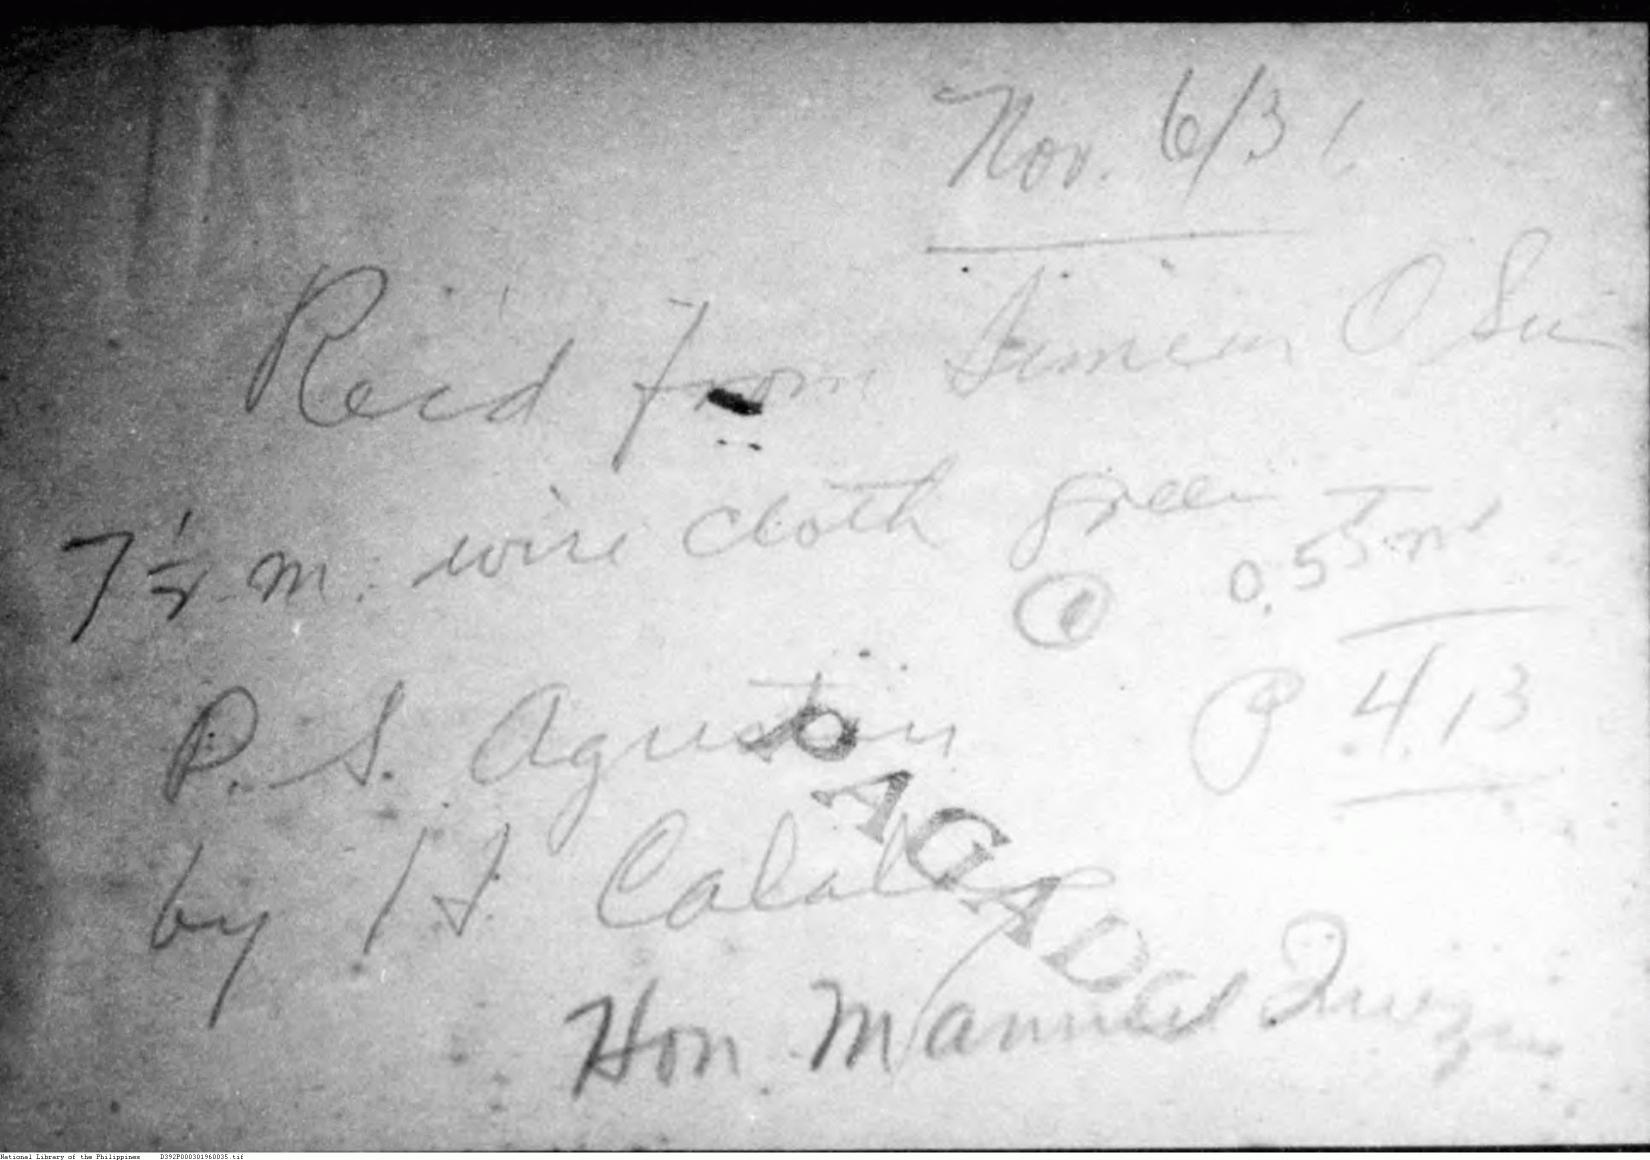 Nov. 6/31
Rec'd from Simeon O. Su
7 1/2 m. wire cloth green
@ 0.55 m
₱ 4.13
P. S. Agustin
by H.
PAGADO
Hon. Manuel Quezon
National Library of the Philippines D392P000301960035.tif